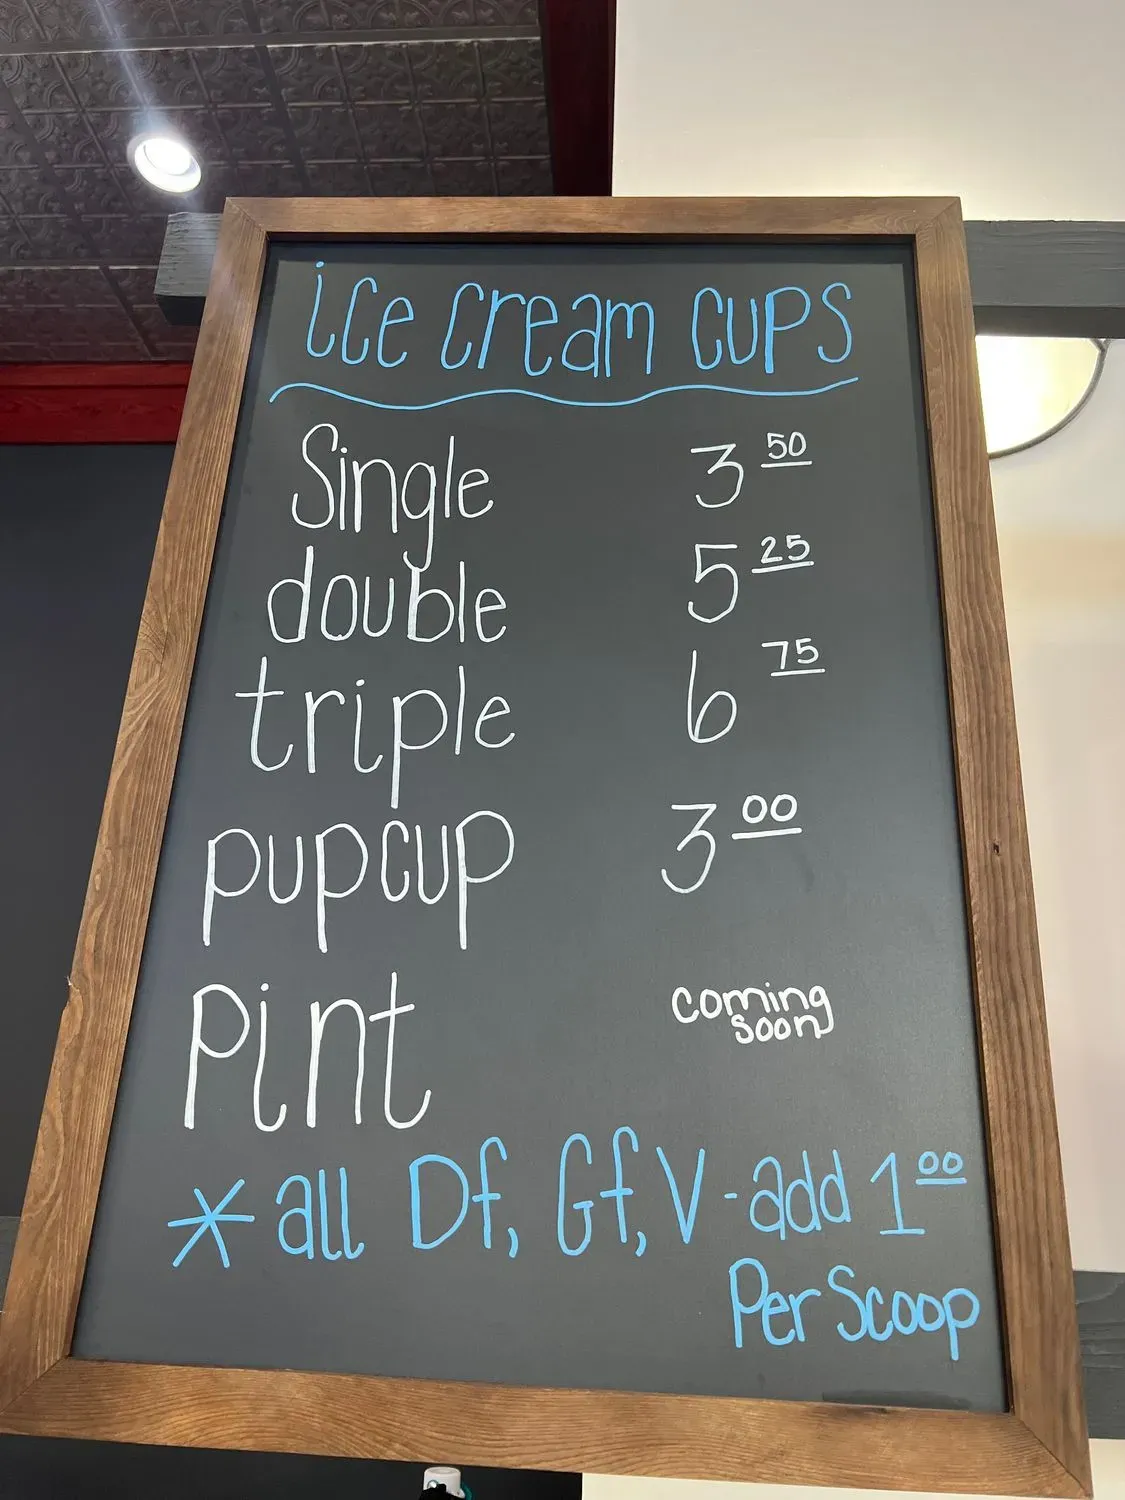 ice cream cups
Single 3 50
double 5 25
triple 6 75
pupcup 3 00
Pint coming soon
* all Df, Gf, V - add 1 00
Per Scoop